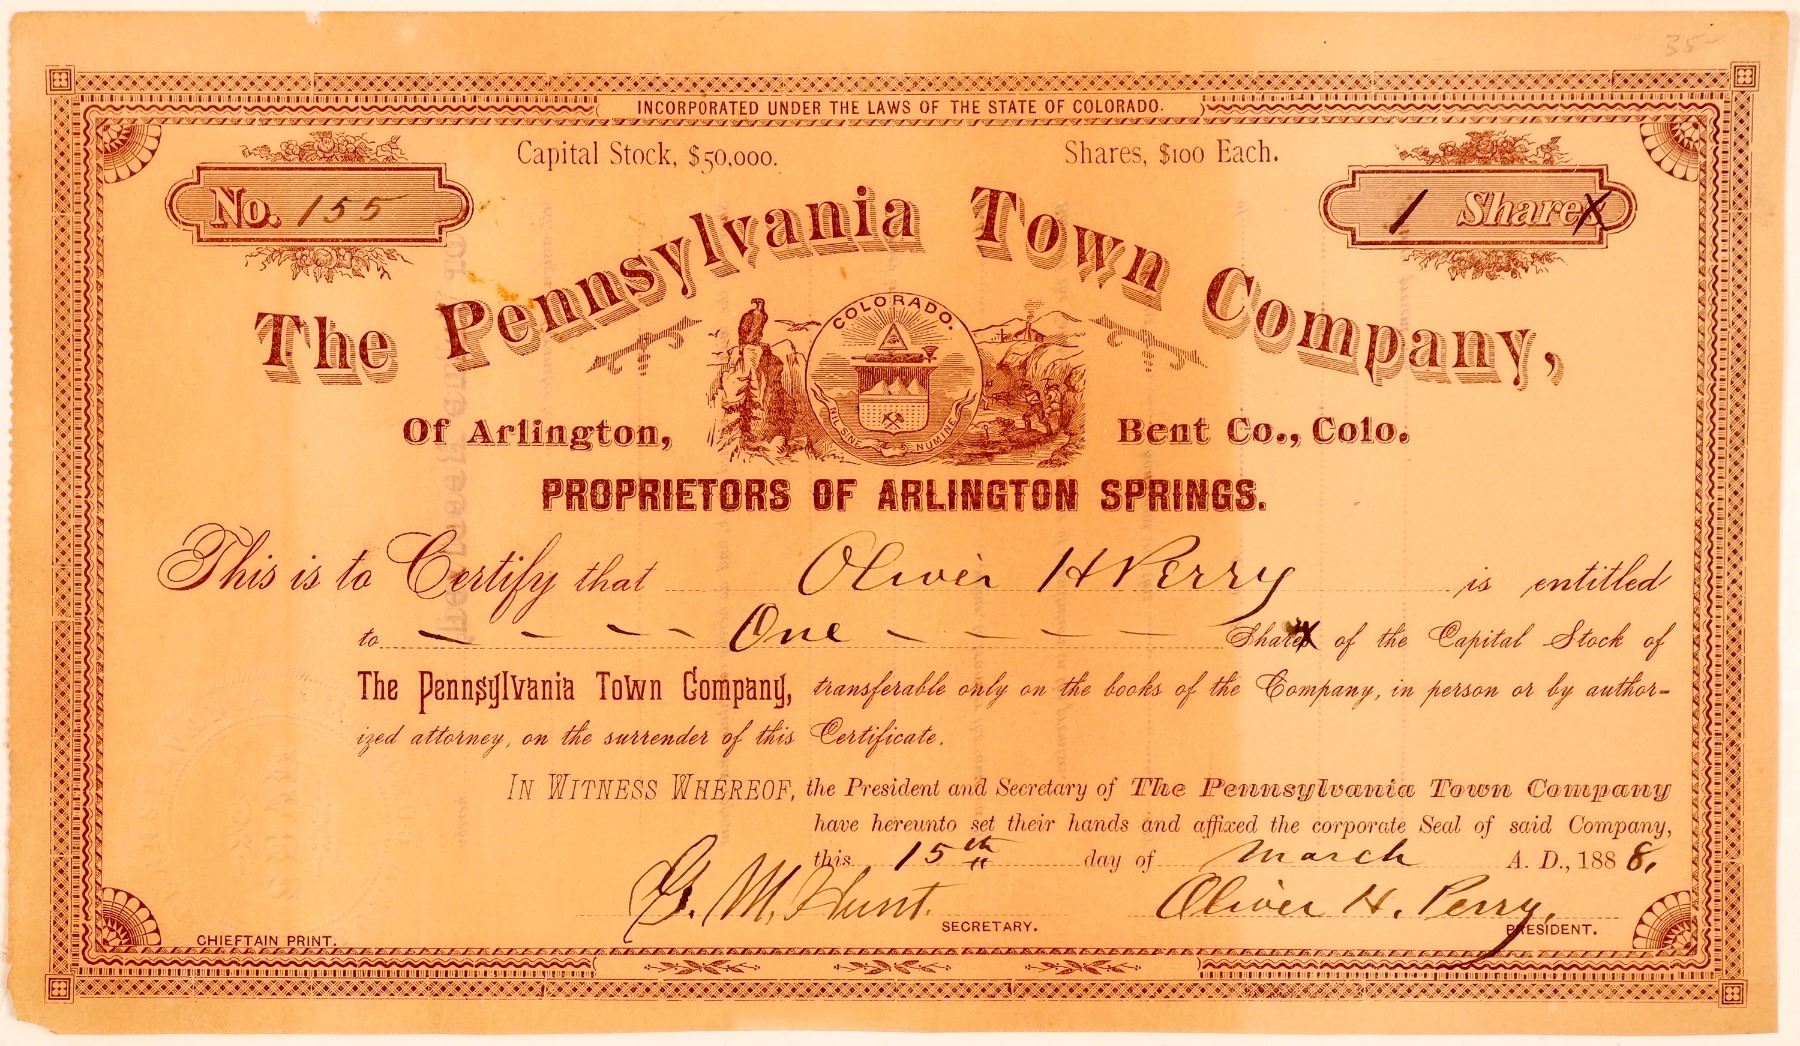 35-
INCORPORATED UNDER THE LAWS OF THE STATE OF COLORADO.
Capital Stock, $50,000. Shares, $100 Each.
No. 155
1 Shares
The Pennsylvania Town Company,
COLORADO.
NIL SINE NUMINE
Of Arlington, Bent Co., Colo.
PROPRIETORS OF ARLINGTON SPRINGS.
This is to Certify that Oliver H Perry is entitled
to One Shares of the Capital Stock of
The Pennsylvania Town Company, transferable only on the books of the Company, in person or by author-
ized attorney, on the surrender of this Certificate.
IN WITNESS WHEREOF, the President and Secretary of The Pennsylvania Town Company
have hereunto set their hands and affixed the corporate Seal of said Company,
this 15th day of March A. D., 1888.
G. M. Hunt. SECRETARY.
Oliver H. Perry. PRESIDENT.
CHIEFTAIN PRINT.